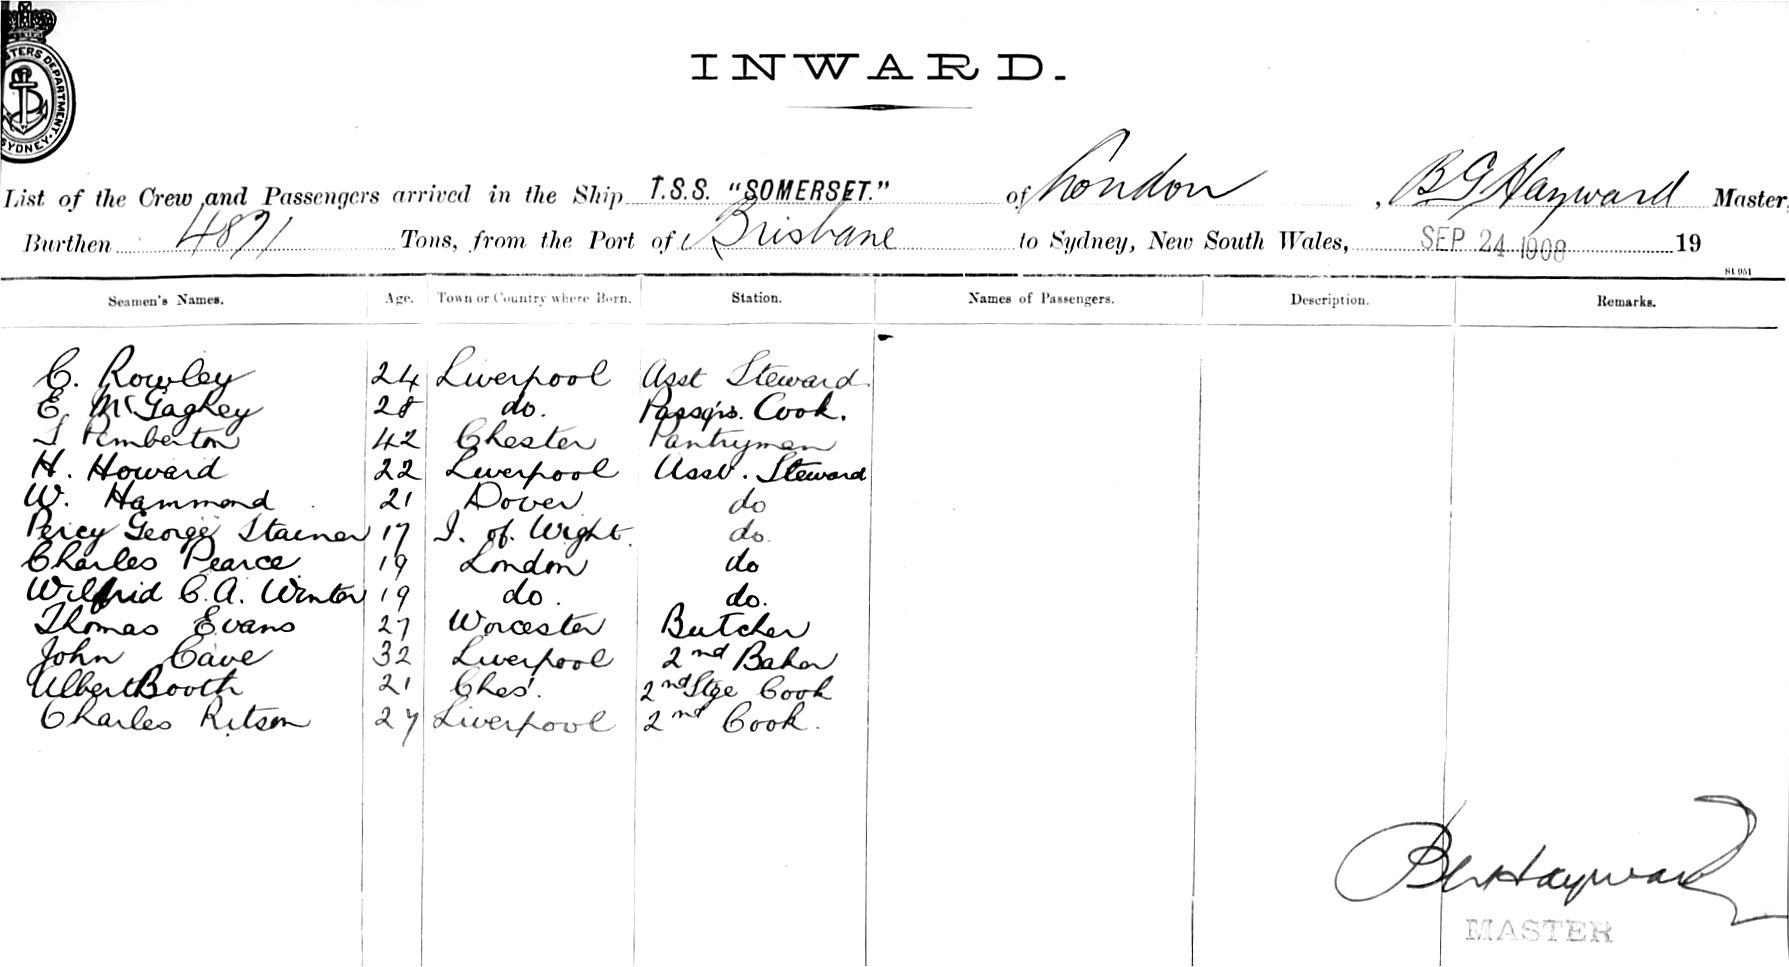 INWARD.
STERS DEPARTMENT. SYDNEY.
List of the Crew and Passengers arrived in the Ship T.S.S. "SOMERSET." of London, B G Hayward Master,
Burthen 4871 Tons, from the Port of Brisbane to Sydney, New South Wales, SEP 24 1908 19
St 951
Seamen's Names. Age. Town or Country where Born. Station. Names of Passengers. Description. Remarks.
C. Rowley 24 Liverpool Asst Steward
E. McGaghey 28 do. Passgrs. Cook.
Pemberton 42 Chester Pantryman
H. Howard 22 Liverpool Asst. Steward
W. Hammond 21 Dover do
Percy George Stainer 17 I. of Wight do.
Charles Pearce 19 London do
Wilfrid C.A. Winter 19 do. do.
Thomas Evans 27 Worcester Butcher
John Cave 32 Liverpool 2nd Baker
Albert Booth 21 Ches'. 2nd Stge Cook
Charles Ritson 27 Liverpool 2nd Cook.
B G Hayward
MASTER